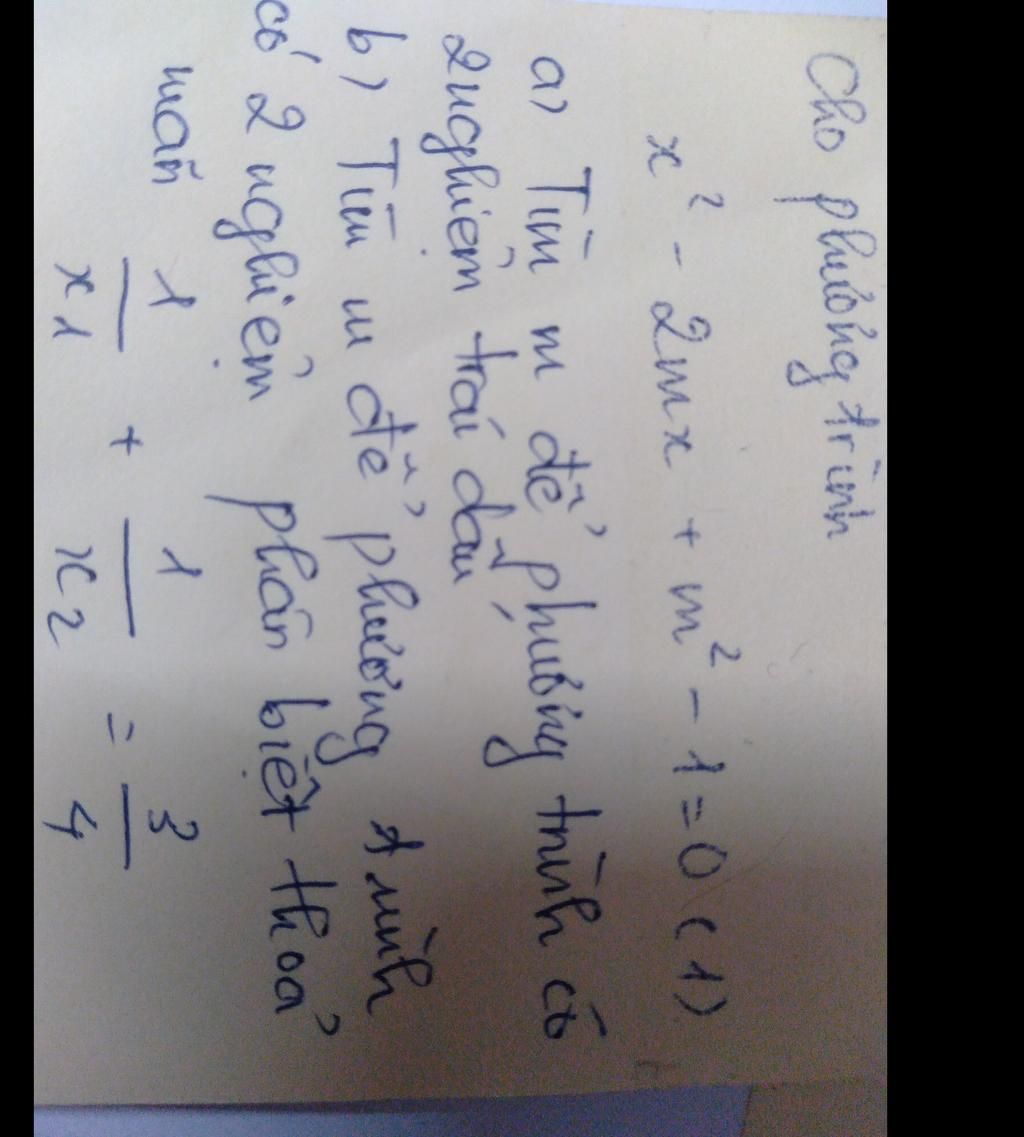 Cho phương trình
x² - 2mx + m² - 1 = 0 (1)
a) Tìm m để phương trình có
2 nghiệm trái dấu
b) Tìm m để phương trình
có 2 nghiệm phân biệt thoả
mãn 1/x1 + 1/x2 = 3/4